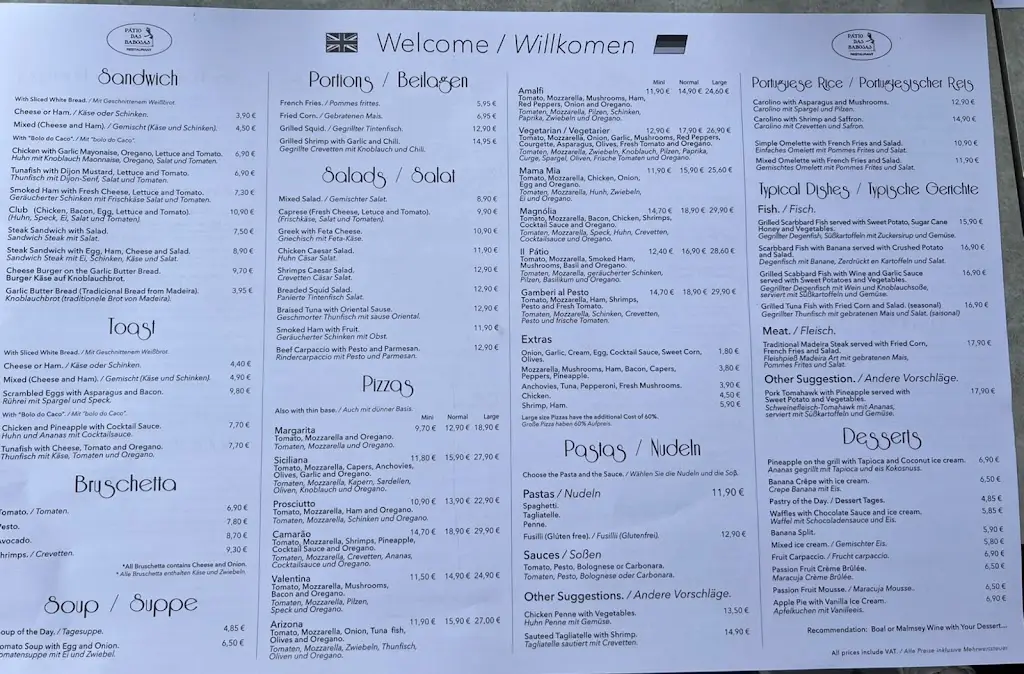 PÁTIO
DAS
BABOSAS
RESTAURANT
Welcome / Willkomen
PÁTIO
DAS
BABOSAS
RESTAURANT
Sandwich
With Sliced White Bread. / Mit Geschnittenem Weißbrot.
Cheese or Ham. / Käse oder Schinken. 3,90 €
Mixed (Cheese and Ham). / Gemischt (Käse und Schinken). 4,50 €
With "Bolo do Caco". / Mit "bolo do Caco".
Chicken with Garlic Mayonnaise, Oregano, Lettuce and Tomato. 6,90 €
Huhn mit Knoblauch Maonnaise, Oregano, Salat und Tomaten.
Tunafish with Dijon Mustard, Lettuce and Tomato. 6,90 €
Thunfisch mit Dijon-Senf, Salat und Tomaten.
Smoked Ham with Fresh Cheese, Lettuce and Tomato. 7,30 €
Geräucherter Schinken mit Frischkäse Salat und Tomaten.
Club (Chicken, Bacon, Egg, Lettuce and Tomato). 10,90 €
(Huhn, Speck, Ei, Salat und Tomaten).
Steak Sandwich with Salad. 7,50 €
Sandwich Steak mit Salat.
Steak Sandwich with Egg, Ham, Cheese and Salad. 8,90 €
Sandwich Steak mit Ei, Schinken, Käse und Salat.
Cheese Burger on the Garlic Butter Bread. 9,70 €
Burger Käse auf Knoblauchbrot.
Garlic Butter Bread (Tradicional Bread from Madeira). 3,95 €
Knoblauchbrot (traditionele Brot von Madeira).
Toast
With Sliced White Bread. / Mit Geschnittenem Weißbrot
Cheese or Ham. / Käse oder Schinken. 4,40 €
Mixed (Cheese and Ham). / Gemischt (Käse und Schinken). 4,90 €
Scrambled Eggs with Asparagus and Bacon. 9,80 €
Rührei mit Spargel und Speck.
With "Bolo do Caco". / Mit "bolo do Caco".
Chicken and Pineapple with Cocktail Sauce. 7,70 €
Huhn und Ananas mit Cocktailsauce.
Tunafish with Cheese, Tomato and Oregano. 7,70 €
Thunfisch mit Käse, Tomaten und Oregano.
Bruschetta
Tomato. / Tomaten. 6,90 €
Pesto. 7,80 €
Avocado. 8,70 €
Shrimps. / Crevetten. 9,30 €
*All Bruschetta contains Cheese and Onion.
* Alle Bruschetta enthalten Käse und Zwiebeln.
Soup / Suppe
Soup of the Day. / Tagesuppe. 4,85 €
Tomato Soup with Egg and Onion. 6,50 €
Tomatensuppe mit Ei und Zwiebel.
Portions / Beilagen
French Fries. / Pommes frittes. 5,95 €
Fried Corn. / Gebratenen Mais. 6,95 €
Grilled Squid. / Gegrillter Tintenfisch. 12,90 €
Grilled Shrimp with Garlic and Chili. 14,95 €
Gegrillte Crevetten mit Knoblauch und Chili.
Salads / Salat
Mixed Salad. / Gemischter Salat. 8,90 €
Caprese (Fresh Cheese, Lettuce and Tomato). 9,90 €
(Frischkäse, Salat und Tomaten).
Greek with Feta Cheese. 10,90 €
Griechisch mit Feta-Käse.
Chicken Caesar Salad. 11,90 €
Huhn Cäsar Salat.
Shrimps Caesar Salad. 12,90 €
Crevetten Cäsar Salat.
Breaded Squid Salad. 12,90 €
Panierte Tintenfisch Salat.
Braised Tuna with Oriental Sause. 12,90 €
Geschmorter Thunfisch mit sause Oriental.
Smoked Ham with Fruit. 11,90 €
Geräucherter Schinken mit Obst.
Beef Carpaccio with Pesto and Parmesan. 12,90 €
Rindercarpaccio mit Pesto und Parmesan.
Pizzas
Also with thin base. / Auch mit dünner Basis.
Mini Normal Large
Margarita 9,70 € 12,90 € 18,90 €
Tomato, Mozzarella and Oregano.
Tomaten, Mozzarella und Oregano.
Siciliana 11,80 € 15,90 € 27,90 €
Tomato, Mozzarella, Capers, Anchovies,
Olives, Garlic and Oregano.
Tomaten, Mozzarella, Kapern, Sardellen,
Oliven, Knoblauch und Oregano.
Prosciutto 10,90 € 13,90 € 22,90 €
Tomato, Mozzarella, Ham and Oregano.
Tomaten, Mozzarella, Schinken und Oregano.
Camarão 14,70 € 18,90 € 29,90 €
Tomato, Mozzarella, Shrimps, Pineapple,
Cocktail Sauce and Oregano.
Tomaten, Mozzarella, Crevetten, Ananas,
Cocktailsauce und Oregano.
Valentina 11,50 € 14,90 € 24,90 €
Tomato, Mozzarella, Mushrooms,
Bacon and Oregano.
Tomaten, Mozzarella, Pilzen,
Speck und Oregano.
Arizona 11,90 € 15,90 € 27,00 €
Tomato, Mozzarella, Onion, Tuna fish,
Olives and Oregano.
Tomaten, Mozzarella, Zwiebeln, Thunfisch,
Oliven und Oregano.
Mini Normal Large
Amalfi 11,90 € 14,90 € 24,60 €
Tomato, Mozzarella, Mushrooms, Ham,
Red Peppers, Onion and Oregano.
Tomaten, Mozzarella, Pilzen, Schinken,
Paprika, Zwiebeln und Oregano.
Vegetarian / Vegetarier 12,90 € 17,90 € 26,90 €
Tomato, Mozzarella, Onion, Garlic, Mushrooms, Red Peppers,
Courgette, Asparagus, Olives, Fresh Tomato and Oregano.
Tomaten, Mozzarella, Zwiebeln, Knoblauch, Pilzen, Paprika,
Curge, Spargel, Oliven, Frische Tomaten und Oregano.
Mama Mia 11,90 € 15,90 € 25,60 €
Tomato, Mozzarella, Chicken, Onion,
Egg and Oregano.
Tomaten, Mozzarella, Hunh, Zwiebeln,
Ei und Oregano.
Magnólia 14,70 € 18,90 € 29,90 €
Tomato, Mozzarella, Bacon, Chicken, Shrimps,
Cocktail Sauce and Oregano.
Tomaten, Mozzarella, Speck, Huhn, Crevetten,
Cocktailsauce und Oregano.
Il Pátio 12,40 € 16,90 € 28,60 €
Tomato, Mozzarella, Smoked Ham,
Mushrooms, Basil and Oregano.
Tomaten, Mozzarella, geräucherter Schinken,
Pilzen, Basilikum und Oregano.
Gamberi al Pesto 14,70 € 18,90 € 29,90 €
Tomato, Mozzarella, Ham, Shrimps,
Pesto and Fresh Tomato.
Tomaten, Mozzarella, Schinken, Crevetten,
Pesto und frische Tomaten.
Extras
Onion, Garlic, Cream, Egg, Cocktail Sauce, Sweet Corn, 1,80 €
Olives.
Mozzarella, Mushrooms, Ham, Bacon, Capers, 3,80 €
Peppers, Pineapple.
Anchovies, Tuna, Pepperoni, Fresh Mushrooms. 3,90 €
Chicken. 4,50 €
Shrimp, Ham. 5,90 €
Large size Pizzas have the additional Cost of 60%.
Große Pizza haben 60% Aufpreis.
Pastas / Nudeln
Choose the Pasta and the Sauce. / Wählen Sie die Nudeln und die Soß.
Pastas / Nudeln 11,90 €
Spaghetti.
Tagliatelle.
Penne.
Fusilli (Glúten free). / Fusilli (Glutenfrei). 12,90 €
Sauces / Soßen
Tomato, Pesto, Bolognese or Carbonara.
Tomaten, Pesto, Bolognese oder Carbonara.
Other Suggestions. / Andere Vorschläge.
Chicken Penne with Vegetables. 13,50 €
Huhn Penne mit Gemüse.
Sauteed Tagliatelle with Shrimp. 14,90 €
Tagliatelle sautiert mit Crevetten.
Portuguese Rice / Portugiesischer Reis
Carolino with Asparagus and Mushrooms. 12,90 €
Carolino mit Spargel und Pilzen.
Carolino with Shrimp and Saffron. 14,90 €
Carolino mit Crevetten und Safron.
Simple Omelette with French Fries and Salad. 10,90 €
Einfaches Omelett mit Pommes Frites und Salat.
Mixed Omelette with French Fries and Salad. 11,90 €
Gemischtes Omelett mit Pommes Frites und Salat.
Typical Dishes / Typische Gerichte
Fish. / Fisch.
Grilled Scarbbard Fish served with Sweet Potato, Sugar Cane 15,90 €
Honey and Vegetables.
Gegrillter Degenfish, Süßkartoffeln mit Zuckersirup und Gemüse.
Scarbbard Fish with Banana served with Crushed Potato 16,90 €
and Salad.
Degenfisch mit Banane, Zerdrückt en Kartoffeln und Salat.
Grilled Scabbard Fish with Wine and Garlic Sauce 16,90 €
served with Sweet Potatoes and Vegetables.
Grillter Degenfisch mit Wein und Knoblauchsoße,
serviert mit Süßkartoffeln und Gemüse.
Grilled Tuna Fish with Fried Corn and Salad. (seasonal) 16,90 €
Gegrillter Thunfisch mit gebratenen Mais und Salat. (saisonal)
Meat. / Fleisch.
Traditional Madeira Steak served with Fried Corn, 17,90 €
French Fries and Salad.
Fleishpieß Madeira Art mit gebratenen Mais,
Pommes Frites und Salat.
Other Suggestion. / Andere Vorschläge.
Pork Tomahawk with Pineapple served with 17,90 €
Sweet Potato and Vegetables.
Schweinefleisch-Tomahawk mit Ananas,
serviert mit Süßkartoffeln und Gemüse.
Desserts
Pineapple on the grill with Tapioca and Coconut ice cream. 6,90 €
Ananas gegrillt mit Tapioca und eis Kokosnuss.
Banana Crêpe with ice cream. 6,50 €
Crepe Banana mit Eis.
Pastry of the Day. / Dessert Tages. 4,85 €
Waffles with Chocolate Sauce and ice cream. 5,85 €
Waffel mit Schocoladensauce und Eis.
Banana Split. 5,90 €
Mixed ice cream. / Gemischter Eis. 5,80 €
Fruit Carpaccio. / Frucht carpaccio. 6,90 €
Passion Fruit Crème Brûlée. 6,50 €
Maracuja Crème Brûlée.
Passion Fruit Mousse. / Maracuja Mousse. 6,50 €
Apple Pie with Vanilla Ice Cream. 6,90 €
Apfelkuchen mit Vanilleeis.
Recommendation: Boal or Malmsey Wine with Your Dessert...
All prices include VAT. / Alle Preise inklusive Mehrwertsteuer.